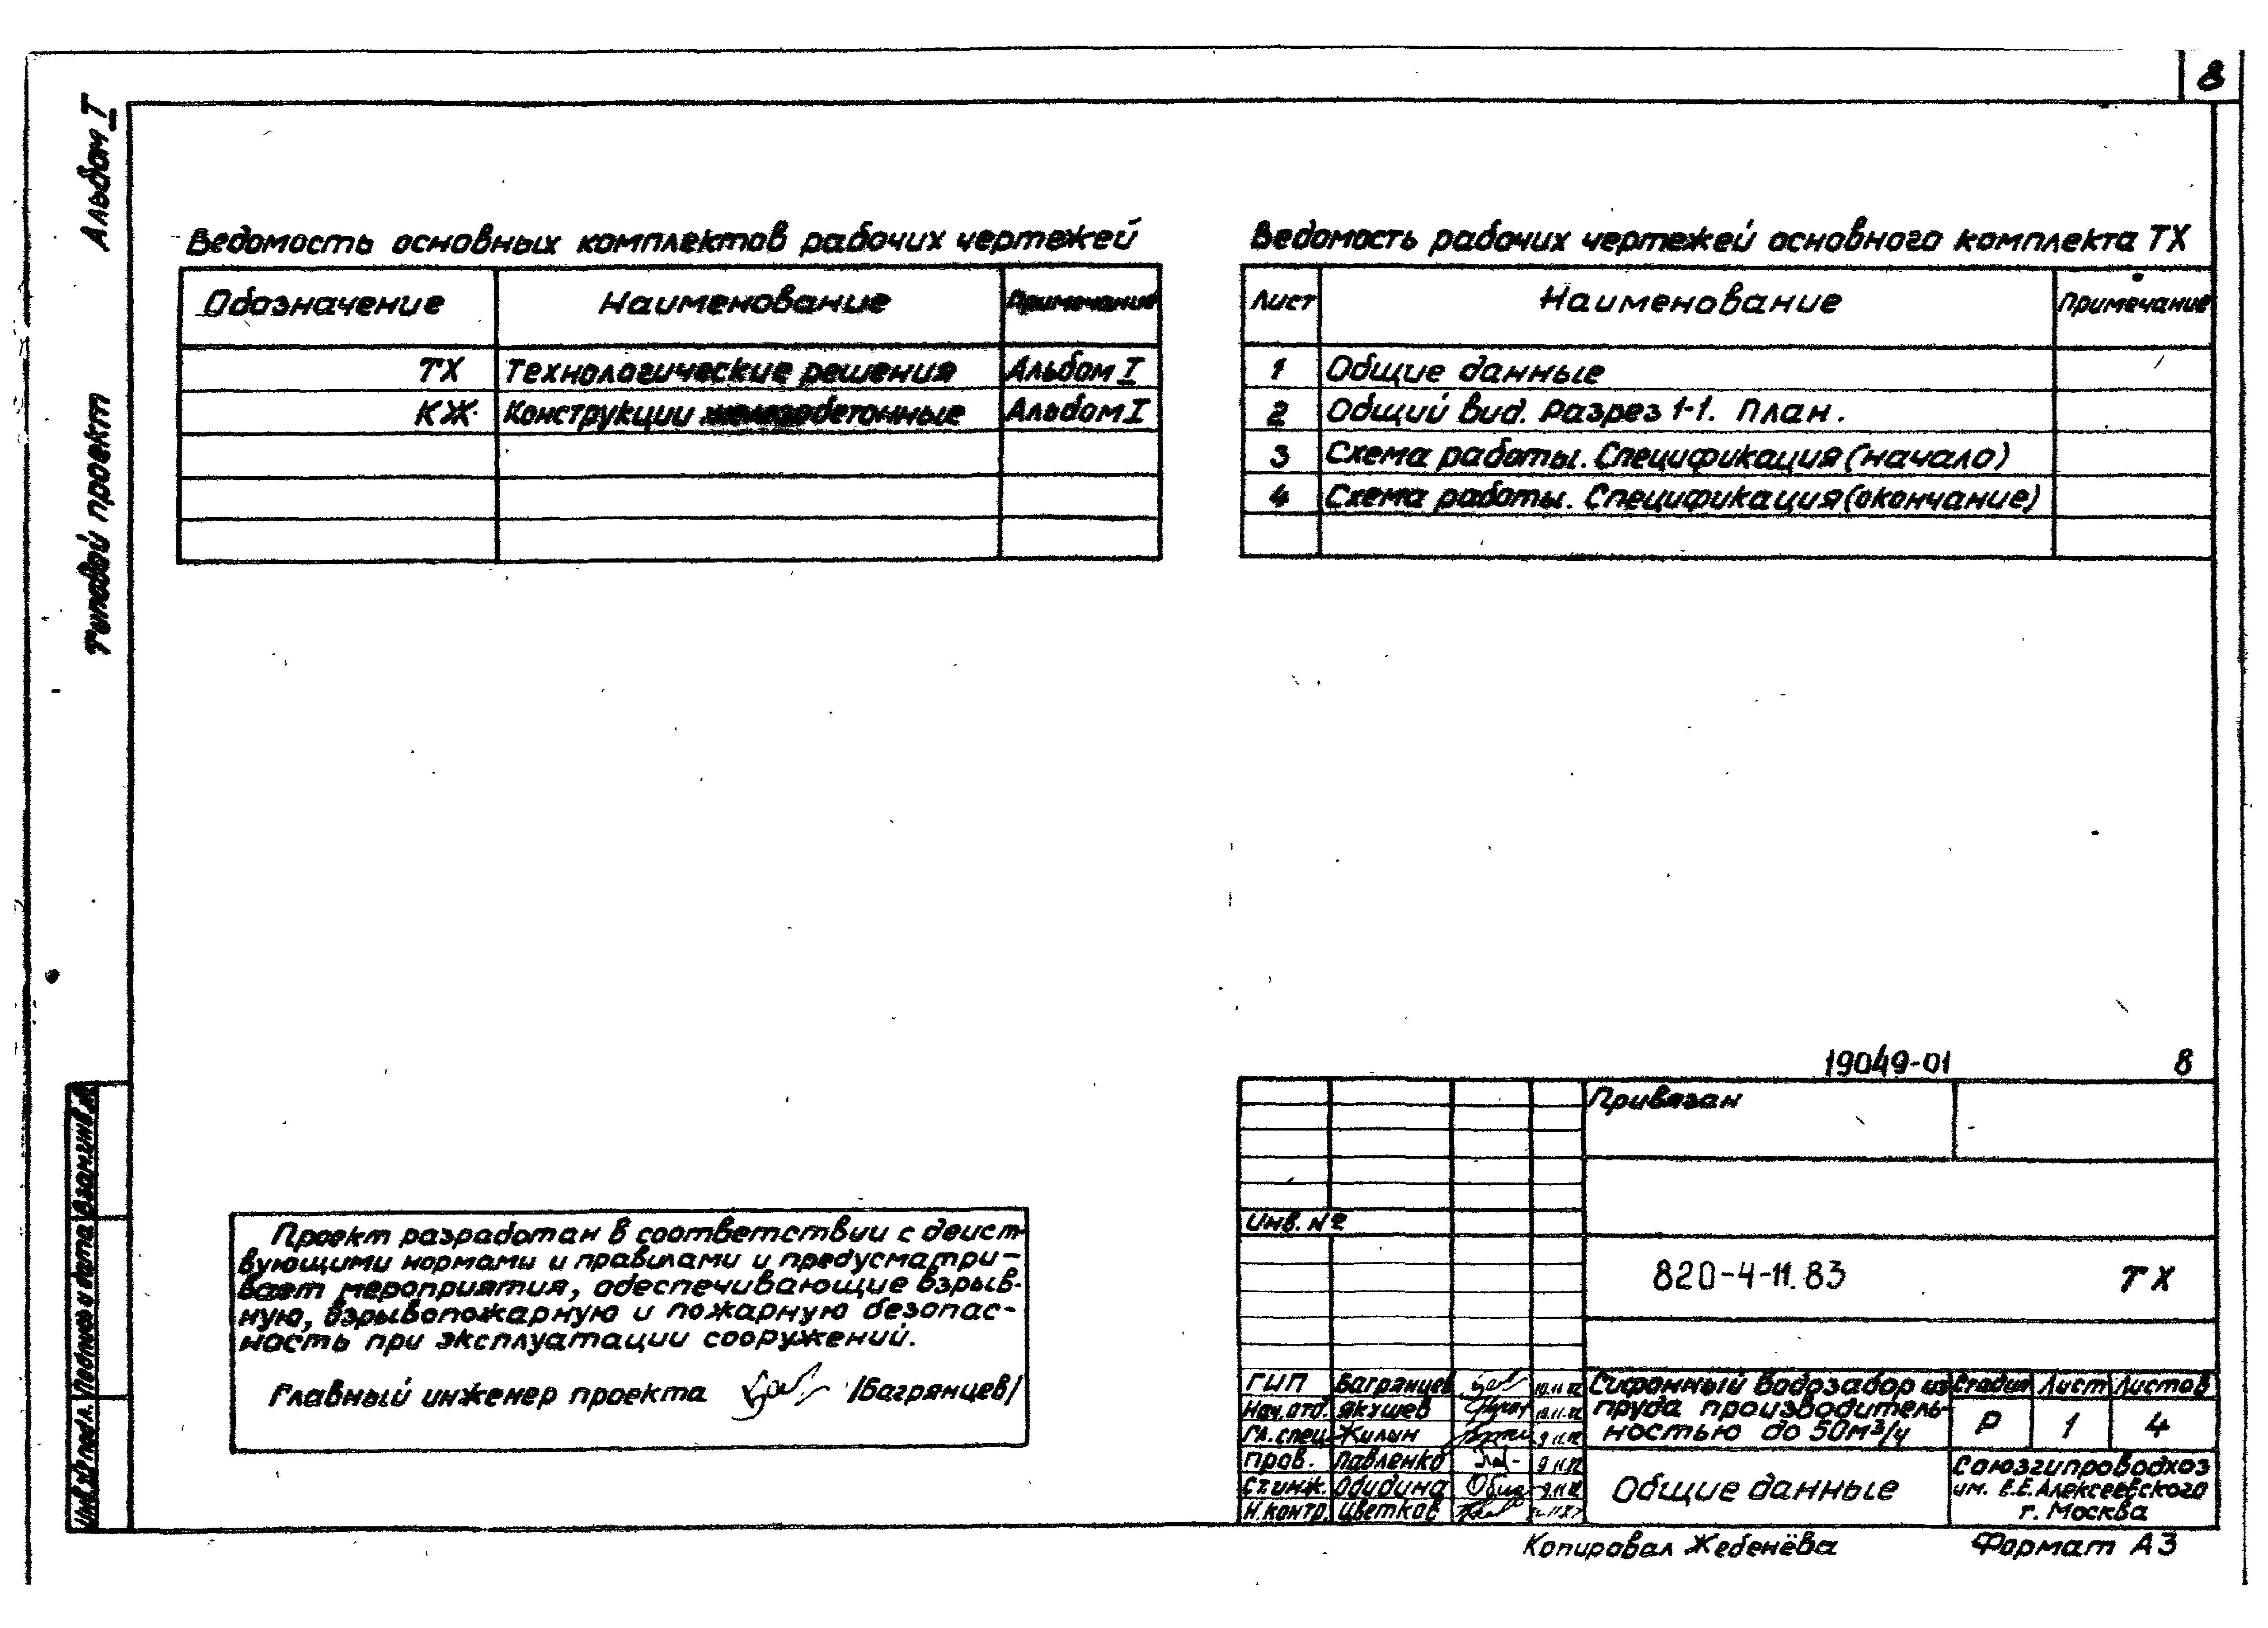 8
Альбом I
Типовой проект
Ведомость основных комплектов рабочих чертежей
Обозначение Наименование Примечание
ТХ Технологические решения Альбом I
КЖ Конструкции железобетонные Альбом I
Ведомость рабочих чертежей основного комплекта ТХ
Лист Наименование Примечание
1 Общие данные
2 Общий вид. Разрез 1-1. План.
3 Схема работы. Спецификация (начало)
4 Схема работы. Спецификация (окончание)
Проект разработан в соответствии с дейст-
вующими нормами и правилами и предусматри-
вает мероприятия, обеспечивающие взрыв-
ную, взрывопожарную и пожарную безопас-
ность при эксплуатации сооружений.
Главный инженер проекта /Багрянцев/
Инв. № подл. Подпись и дата Взам. инв. №
19049-01 8
Привязан
Инв. №
820-4-11.83 ТХ
ГИП Багрянцев 10.11.82
Нач. отд. Якушев 10.11.82
Гл. спец. Жилын 9.11.82
Пров. Павленко 9.11.82
Ст. инж. Обидина 9.11.82
Н. контр. Цветков
Сифонный водозабор из
пруда производитель-
ностью до 50 м³/ч
Стадия Лист Листов
Р 1 4
Общие данные
Союзгипроводхоз
им. Е.Е. Алексеевского
г. Москва
Копировал Жебенёва Формат А3